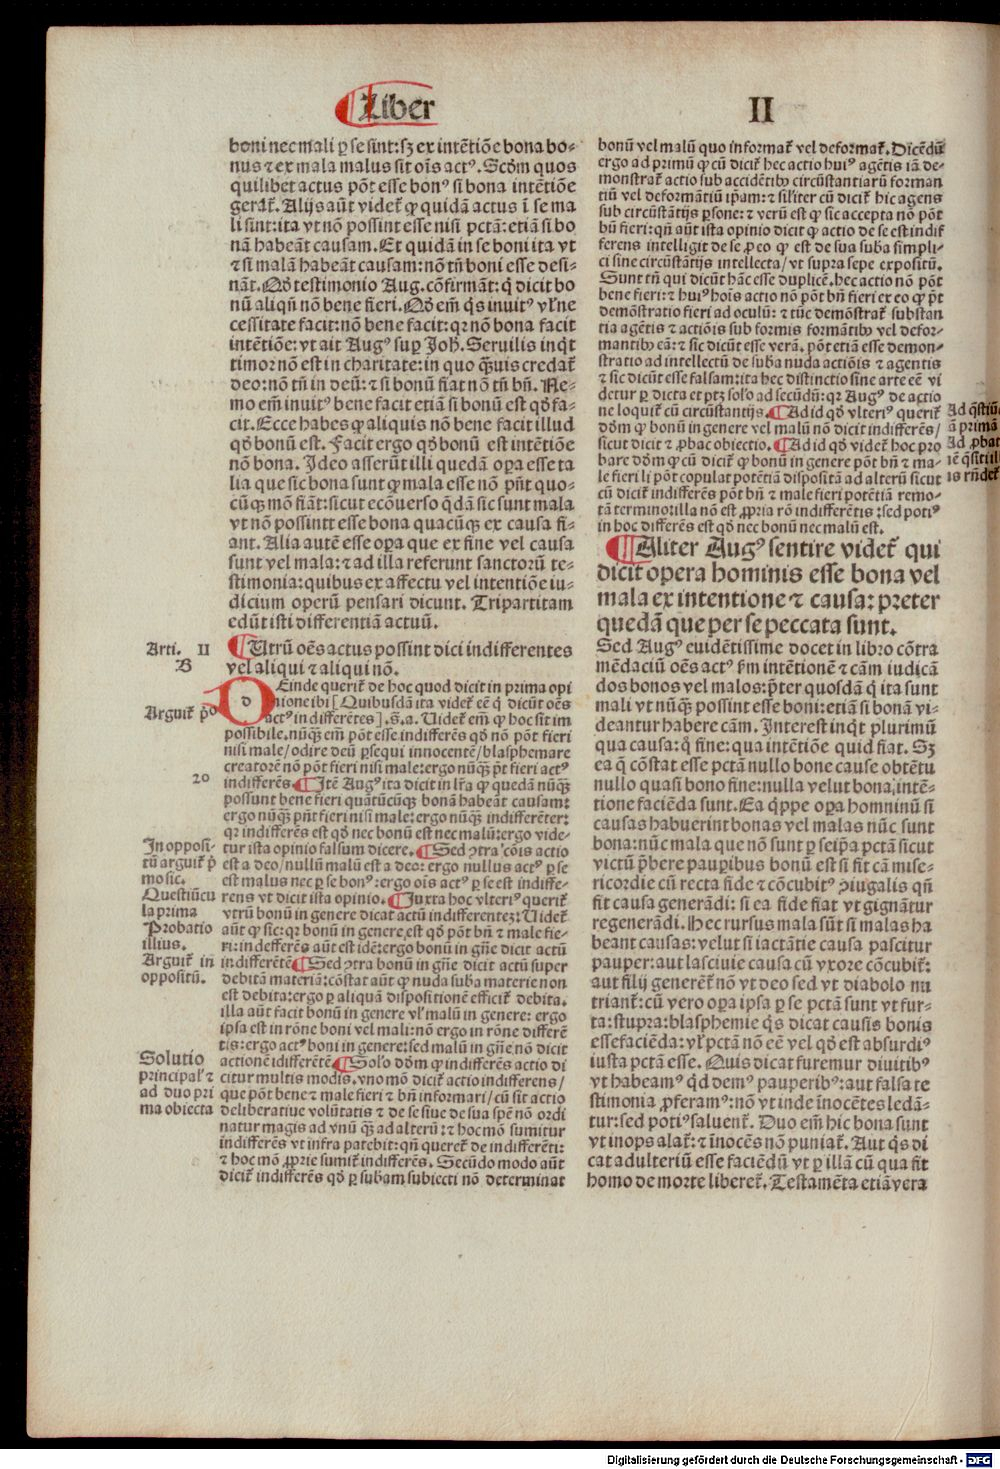 Liber
II
boni nec mali ꝑ se sint: sꝫ ex intẽtiõe bona bo-
nus ⁊ ex mala malus sit oĩs actꝰ. Scd̃m quos
quilibet actus põt esse bonꝰ si bona intẽtiõe
gerat̃. Alijs aũt videt̃ ꝙ quidã actus ĩ se ma
li sint: ita vt nõ possint esse nisi pctã: etiã si bo
nã habeãt causam. Et quidã in se boni ita vt
⁊ si malã habeãt causam: nõ tñ boni esse desi-
nãt. Qd̃ testimonio Aug. cõfirmãt: q̃ dicit bo
nũ aliqñ nõ bene fieri. Qd̃ em̃ q̃s inuitꝰ vl̃ ne
cessitate facit: nõ bene facit: qꝛ nõ bona facit
intẽtiõe: vt ait Augꝰ suꝑ Joh̃. Seruilis inq̃t
timor nõ est in charitate: in quo q̃uis credat̃
deo: nõ tñ in deũ: ⁊ si bonũ fiat nõ tñ bñ. Ne-
mo em̃ inuitꝰ bene facit etiã si bonũ est qd̃ fa-
cit. Ecce habes ꝙ aliquis nõ bene facit illud
qd̃ bonũ est. Facit ergo qd̃ bonũ est intẽtiõe
nõ bona. Ideo asserũt illi quedã oꝑa esse ta
lia que sic bona sunt ꝙ mala esse nõ pñt quo-
cũqꝫ mõ fiãt: sicut ecõuerso q̃dã sic sunt mala
vt nõ possintt esse bona quacũqꝫ ex causa fi-
ant. Alia autẽ esse oꝑa que ex fine vel causa
sunt vel mala: ⁊ ad illa referunt sanctorũ te-
stimonia: quibus ex affectu vel intentiõe iu-
dicium operũ pensari dicunt. Tripartitam
edũt isti differentiã actuũ.
Arti. II
B
Utrũ oẽs actus possint dici indifferentes
vel aliqui ⁊ aliqui nõ.
Arguit̃ pº
dEinde querit̃ de hoc quod dicit in prima opi
nione ibi [Quibusdã ita videt̃ eẽ q̃ dicũt oẽs
actꝰ indifferẽtes]. S. a. Videt̃ em̃ ꝙ hoc sit im
possibile. nũqꝫ em̃ põt esse indifferẽs qd̃ nõ põt fieri
nisi male/ odire deũ ꝑsequi innocentẽ/ blasphemare
creatorẽ nõ põt fieri nisi male: ergo nũqꝫ põt fieri actꝰ
20
indifferẽs. Itẽ Augꝰ ita dicit in lr̃a ꝙ quedã nũqꝫ
possunt bene fieri quãtũcũqꝫ bonã habeãt causam:
ergo nũqꝫ pñt fieri nisi male: ergo nũqꝫ indifferẽter:
qꝛ indifferẽs est qd̃ nec bonũ est nec malũ: ergo vide-
In opposi-
tũ arguit̃ p̃
mo sic.
tur ista opinio falsum dicere. Sed ↄtra. cõis actio
est a deo/ nullũ malũ est a deo: ergo nullus actꝰ ꝑ se
est malus nec ꝑ se bonꝰ: ergo oĩs actꝰ ꝑ se est indiffe-
Questiũcu
la prima
rens vt dicit ista opinio. Juxta hoc vlteriꝰ querit̃
vtrũ bonũ in genere dicat actũ indifferentez: Videt̃
Probatio
illius.
aũt ꝙ sic: qꝛ bonũ in genere est qd̃ põt bñ ⁊ male fie-
ri: in defferẽs aũt est idẽ: ergo bonũ in gñe dicit actũ
Arguit̃ in
oppositũ.
indifferẽtẽ. Sed ↄtra bonũ in gñe dicit actũ super
debitã materiã: cõstat aũt ꝙ nuda suba materie non
est debita: ergo ꝑ aliquã dispositionẽ efficit̃ debita.
illa aũt facit bonũ in genere vl̃ malũ in genere: ergo
ipsa est in rõne boni vel mali: nõ ergo in rõne differẽ
tis: ergo actꝰ boni in genere: sed malũ in gñe nõ dicit
Solutio
principalꝰ ⁊
ad duo pri
ma obiecta
actionẽ idifferẽtẽ. Sol̃o dd̃m ꝙ indifferẽs actio di
citur multis modis. vno mõ dicit̃ actio indifferens/
que põt bene ⁊ male fieri ⁊ bñ informari/ cũ sit actio
deliberatiue volũtatis ⁊ de se siue de sua spẽ nõ ordi
natur magis ad vnũ qꝫ ad alterũ: ⁊ hoc mõ sumitur
indifferẽs vt infra patebit: qñ queret̃ de indifferẽti:
⁊ hoc mõ ꝓprie sumit̃ indifferẽs. Secũdo modo aũt
dicit̃ indifferẽs qd̃ ꝑ subam subiecti nõ determinat
bonũ vel malũ quo informat̃ vel deformat̃. Dicẽdũ
ergo ad primũ ꝙ cũ dicit̃ hec actio huiꝰ agẽtis iã de-
monstrat̃ actio sub accidẽtibꝰ circũstantiarũ forman
tiũ vel deformãtiũ ip̃am: ⁊ sil̃iter cũ dicit̃ hic agens
sub circũstãtijs ꝑsone: ⁊ verũ est ꝙ sic accepta nõ põt
bñ fieri: qñ aũt ista opinio dicit ꝙ actio de se est indif
ferens intelligit de se ꝓ eo ꝙ est de sua suba simpli-
ci sine circũstãtijs intellecta/ vt supra sepe expositũ.
Sunt tñ qui dicũt hãc esse duplicẽ. hec actio nõ põt
bene fieri: ⁊ huiꝰ hoĩs actio nõ põt bñ fieri ex eo ꝙ põt
demõstratio fieri ad oculũ: ⁊ tũc demõstrat̃ substan
tia agẽtis ⁊ actiõis sub formis formãtibꝰ vel defor-
mantibꝰ eã: ⁊ sic dicũt esse verã. põt etiã esse demon-
stratio ad intellectũ de suba nuda actiõis ⁊ agentis
⁊ sic dicũt esse falsam: ita hec distinctio sine arte eẽ vi
detur ꝑ dicta et ptꝫ sol̃o ad secũdũ: qꝛ Augꝰ de actio
Ad q̃stiũc
ã primã
ne loquit̃ cũ circũstantijs. Ad id qd̃ vlteriꝰ querit̃
dd̃m ꝙ bonũ in genere vel malũ nõ dicit indifferẽs/
Ad ꝓbat
iẽ q̃siti ill
is rñdet̃
sicut dicit ⁊ ꝓbac obiectio. Ad id qd̃ videt̃ hoc pro
bare dd̃m ꝙ cũ dicit̃ ꝙ bonũ in genere põt bñ ⁊ ma-
le fieri lj põt copulat potẽtiã dispositã ad alterũ sicut
cũ dicit̃ indifferẽs põt bñ ⁊ male fieri potẽtiã remo-
tã termino: illa nõ est ꝓpria rõ indifferẽtis: sed potiꝰ
in hoc differẽs est qd̃ nec bonũ nec malũ est.
Aliter Augꝰ sentire videt̃ qui
dicit opera hominis esse bona vel
mala ex intentione ⁊ causa: preter
quedã que per se peccata sunt.
Sed Augꝰ euidẽtissime docet in libro cõtra
mẽdaciũ oẽs actꝰ ẜm intentionẽ ⁊ cãm iudicã
dos bonos vel malos: p̃ter quosdã q̃ ita sunt
mali vt nũqꝫ possint esse boni: etiã si bonã vi-
deantur habere cãm. Interest inq̃t plurimũ
qua causa: q̃ fine: qua intẽtiõe quid fiat. Sꝫ
ea q̃ cõstat esse pctã nullo bone cause obtẽtu
nullo quasi bono fine: nulla velut bona intẽ-
tione faciẽda sunt. Ea q̃ppe oꝑa hominũ si
causas habuerint bonas vel malas nũc sunt
bona: nũc mala que nõ sunt ꝑ seip̃a pctã sicut
victũ p̃bere pauꝑibus bonũ est si fit cã mise-
ricordie cũ recta fide ⁊ cõcubitꝰ ↄiugalis qñ
fit causa generãdi: si ea fide fiat vt gignãtur
regenerãdi. Hec rursus mala sũt si malas ha
beant causas: velut si iactãtie causa pascitur
pauper: aut lasciuie causa cũ vxore cõcubit̃:
aut filij generẽt̃ nõ vt deo sed vt diabolo nu
triant̃: cũ vero oꝑa ipsa ꝑ se pctã sunt vt fur-
ta: stupra: blasphemie q̃s dicat causis bonis
esse faciẽda: vl̃ pctã nõ eẽ vel qd̃ est absurdiꝰ
iusta pctã esse. Quis dicat furemur diuitibꝰ
vt habeamꝰ q̃d demꝰ pauperibꝰ: aut falsa te
stimonia ꝓferamꝰ: nõ vt inde ĩnocẽtes ledã-
tur: sed potiꝰ saluent̃. Duo em̃ hic bona sunt
vt inops alat̃: ⁊ ĩnocẽs nõ puniat̃. Aut q̃s di
cat adulteriũ esse faciẽdũ vt ꝑ illã cũ qua fit
homo de morte liberet̃. Testamẽta etiã vera
Digitalisierung gefördert durch die Deutsche Forschungsgemeinschaft - DFG